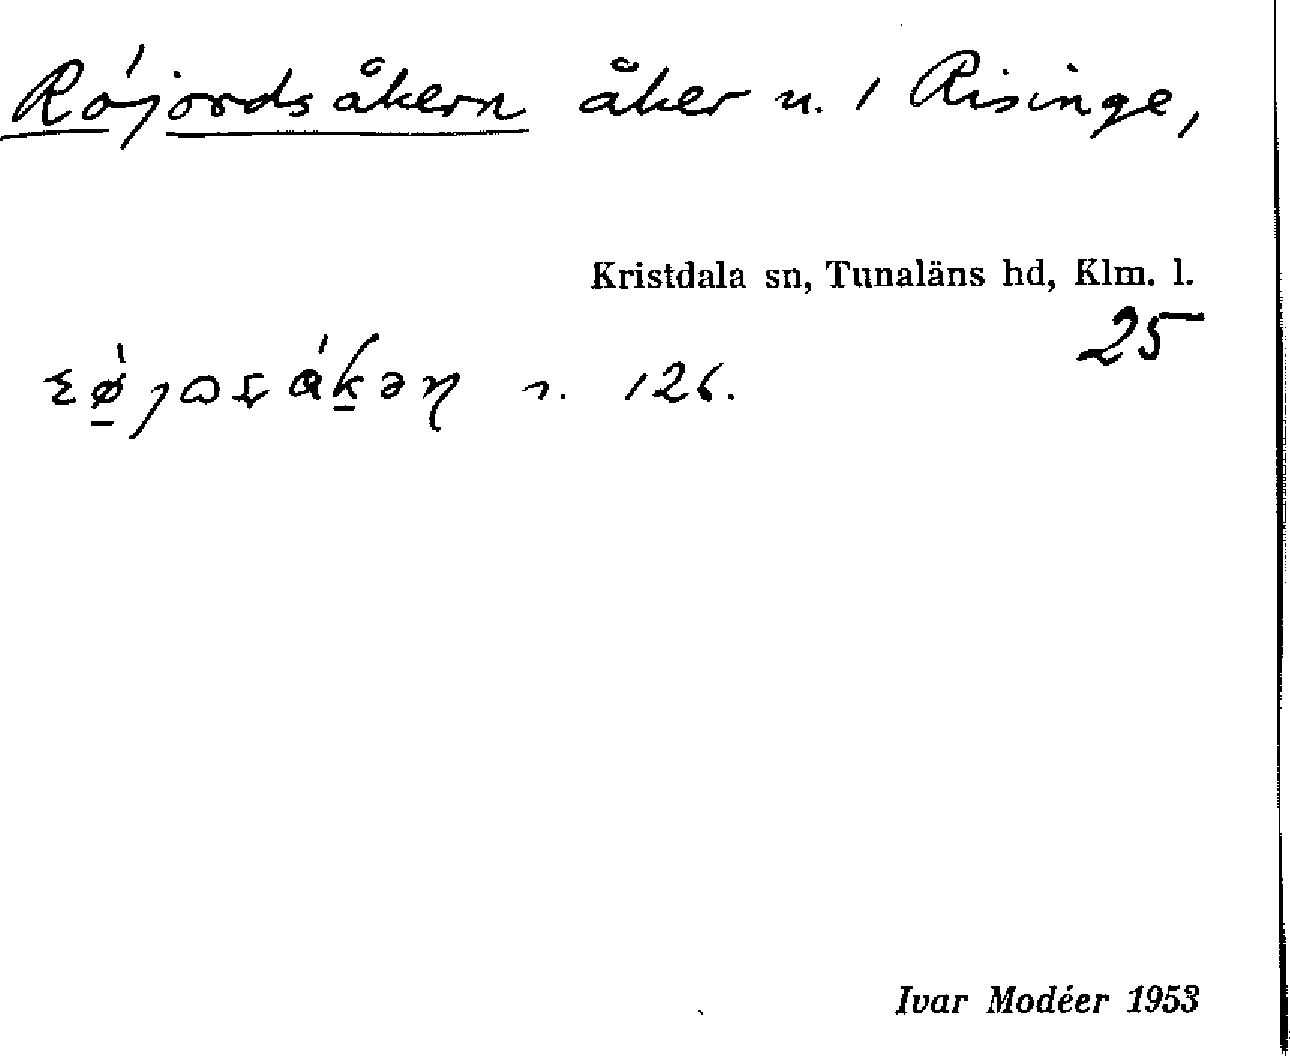 Röjordsåkern åker n. 1 Risinge,
Kristdala sn, Tunaläns hd, Klm. l.
25
126.
Ivar Modéer 1953